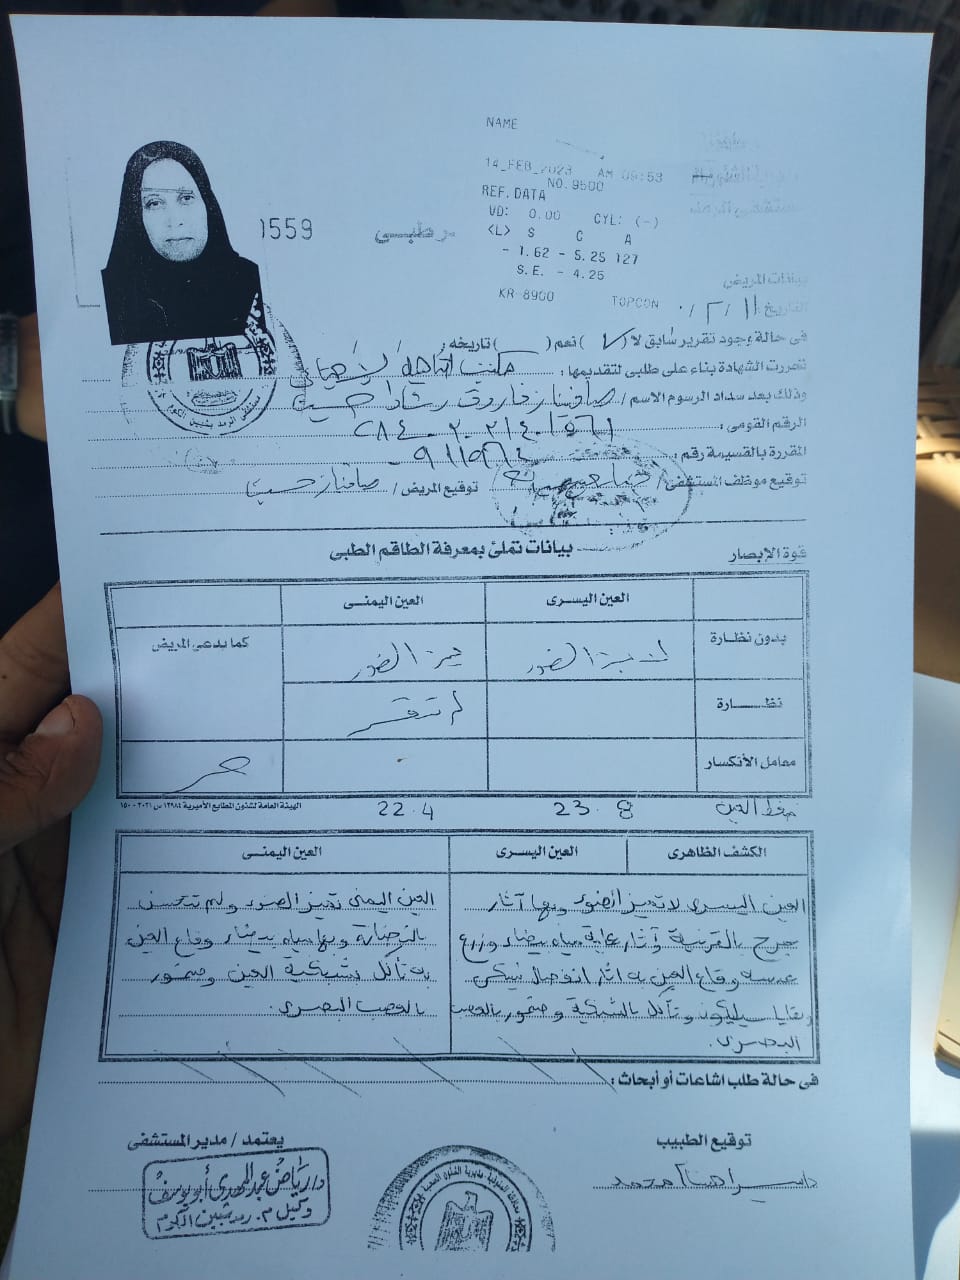 NAME
14_FEB_2023 AM 09:53
NO. 9500
REF. DATA
VD: 0.00 CYL: (-)
<L> S C A
- 1.62 - 5.25 127
S.E. - 4.25
KR-8900 TOPCON
1559
بيانات المريض
التاريخ:
فى حالة وجود تقرير سابق لا (✓) نعم ( ) تاريخه:
تحررت الشهادة بناء على طلبى لتقديمها: مكتب
وذلك بعد سداد الرسوم الاسم / صافيناز فاروق رشاد حسين
الرقم القومى:
المقررة بالقسيمة رقم:
توقيع موظف المستشفى/ توقيع المريض/ صافيناز حسين
بيانات تملئ بمعرفة الطاقم الطبى
قوة الإبصار
العين اليسرى العين اليمنى
بدون نظارة لا تميز الضوء تميز الضوء كما يدعى المريض
نظـــارة لم تتحسن
معامل الأنكسار
ضغط العين 23.8 22.4
الهيئة العامة لشئون المطابع الأميرية
الكشف الظاهرى العين اليسرى العين اليمنى
العين اليسرى لا تميز الضوء وبها آثار
جرح بالقرنية وآثار عملية مياه بيضاء وزرع
عدسة وقاع العين به آثار انفصال شبكى
وبقايا سيليكون وتآكل بالشبكية وضمور بالعصب
البصرى.
العين اليمنى تميز الضوء ولم تتحسن
بالنظارة وبها مياه بيضاء وقاع العين
به تآكل بشبكية العين وضمور
بالعصب البصرى.
فى حالة طلب اشاعات أو أبحاث:
توقيع الطبيب
محمد
يعتمد / مدير المستشفى
د/ رياض عبد المهدى أبو يوسف
وكيل م. رمد شبين الكوم